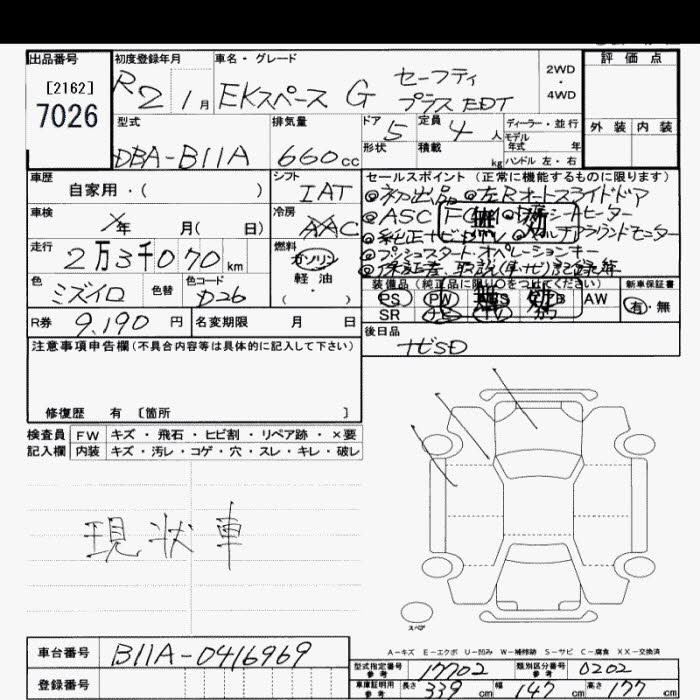 出品番号 初度登録年月 車名・グレード 評価点
[2162] R2 1月 EKスペース G セーフティ 2WD
7026 プラス EDT ・4WD
型式 排気量 ドア 定員 ディーラー・並行 外装 内装
DBA-B11A 660cc 5 4人 モデル年式 年
形状 積載 kg ハンドル 左・右
車歴 シフト セールスポイント (正常に機能するものに限ります)
自家用・( ) IAT ◎初出品 ◎左Rオートスライドドア
車検 年 月( 日) 冷房 AAC ◎ASC 無効 シートヒーター
走行 燃料 ◎純正ナビ ◎マルチアラウンドモニター
2万3千070km ガソリン ◎プッシュスタート・オペレーションキー
色 色替 色コード 軽油 ◎保証書、取説(車・ナビ)記録簿
ミズイロ D26 ( ) 装備品(純正品に限り○をつけてください) 新車保証書
PS PW 無効 AW 有・無
R券 9,190円 名変期限 月 日 SR
注意事項申告欄(不具合内容等は具体的に記入して下さい) 後日品
ナビSD
修復歴 有 〔箇所 〕
検査員 FW キズ・飛石・ヒビ割・リペア跡・×要
記入欄 内装 キズ・汚レ・コゲ・穴・スレ・キレ・破レ
現状車
スペア
A−キズ E−エクボ U−凹み W−補修跡 S−サビ C−腐食 XX−交換済
車台番号 B11A-0416969
型式指定番号 参考 17702 類別区分番号 参考 0202
登録番号
車庫証明用 参考 長さ 339cm 幅 147cm 高さ 177cm